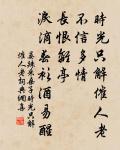 時光只解催人老
不信多情
長恨離亭
淚滴春衫酒易醒
晏殊采桑子時光只解
催人老詞典網集